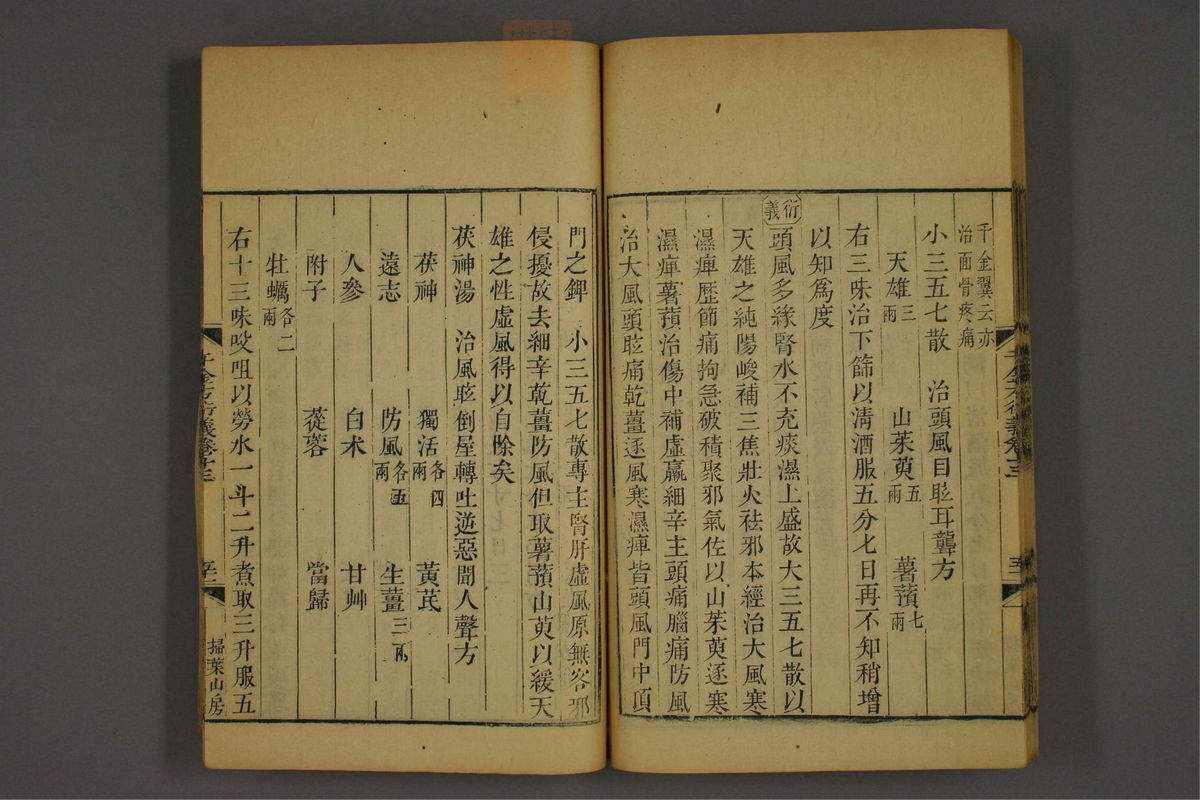 千金翼云亦
治面骨疼痛
小三五七散　治頭風目眩耳聾方
天雄三兩　山茱萸五兩　薯蕷七兩
右三味治下篩以清酒服五分七日再不知稍增
以知爲度
衍義
頭風多緣腎水不充痰濕上盛故大三五七散以
天雄之純陽峻補三焦壯火祛邪本經治大風寒
濕痺歷節痛拘急破積聚邪氣佐以山茱萸逐寒
濕痺薯蕷治傷中補虛羸細辛主頭痛腦痛防風
治大風頭眩痛乾薑逐風寒濕痺皆頭風門中頂
門之鍼　小三五七散專主腎肝虛風原無客邪
侵擾故去細辛乾薑防風但取薯蕷山萸以緩天
雄之性虛風得以自除矣
茯神湯　治風眩倒屋轉吐逆惡聞人聲方
茯神　獨活各四兩　黃芪
遠志　防風各五兩　生薑三兩
人參　白朮　甘艸
附子　蓯蓉　當歸
牡蠣各二兩
右十三味㕮咀以勞水一斗二升煮取三升服五
千金方衍義卷十三
掃葉山房